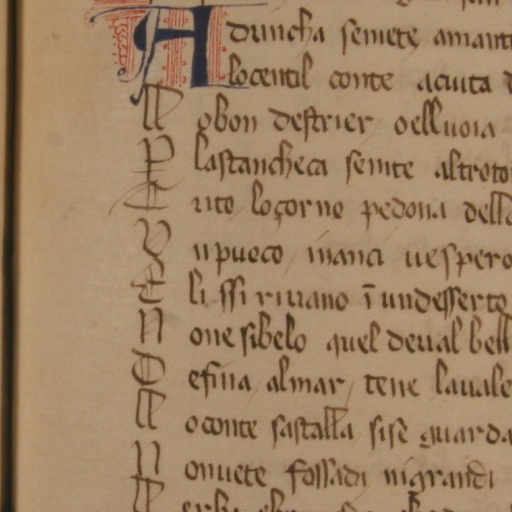 Aduncha semete amant
Locentil conte acuita d
Lobon destrier oelluoia
Plastancheca semte altroto
Erito loçorno pedona dell
Vnpuoco inanci uespero
Eli ssi riuano ī undesserto
None sibelo quel deual bell
Cefina almar tene lauale
Loconte sastalla sise guarda
Nonuete fossadi nigrandi